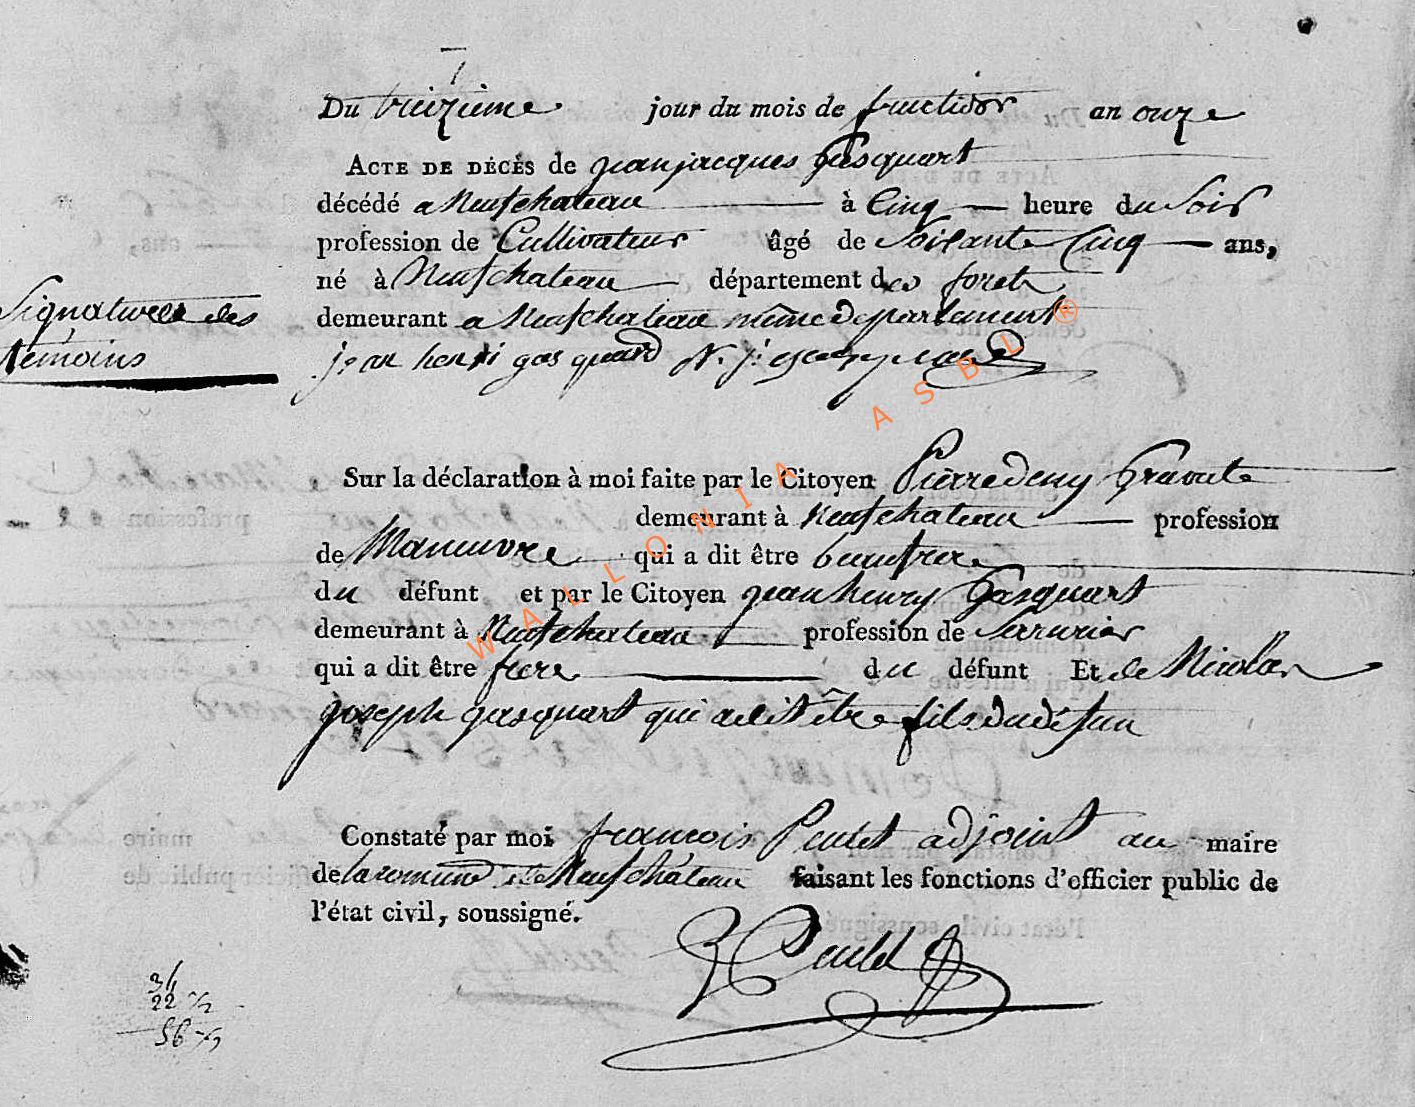 Du treizieme jour du mois de fructidor an onze
ACTE DE DÉCÈS de jean jacques Gasquart
décédé a Neufchateau à Cinq heure du Soir
profession de Cultivateur âgé de Soixante Cinq ans,
né à Neufchateau département des foret
demeurant a Neufchateau même departement
Signatures des
témoins
jean henri gasquard N. j.
Sur la déclaration à moi faite par le Citoyen Pierre deny
demeurant à Neufchateau profession
de Maneuvre qui a dit être beaufrere
du défunt et par le Citoyen jean henry Gasquart
demeurant à Neufchateau profession de Serrurier
qui a dit être frere du défunt Et de Nicolas
joseph gasquart qui a dit être fils du défun
Constaté par moi francois Peutet adjoint au maire
de la comune de Neufchâteau faisant les fonctions d'officier public de
l'état civil, soussigné.
Peutet
34
22 ½
56 ½
WALLONIA ASBL ®